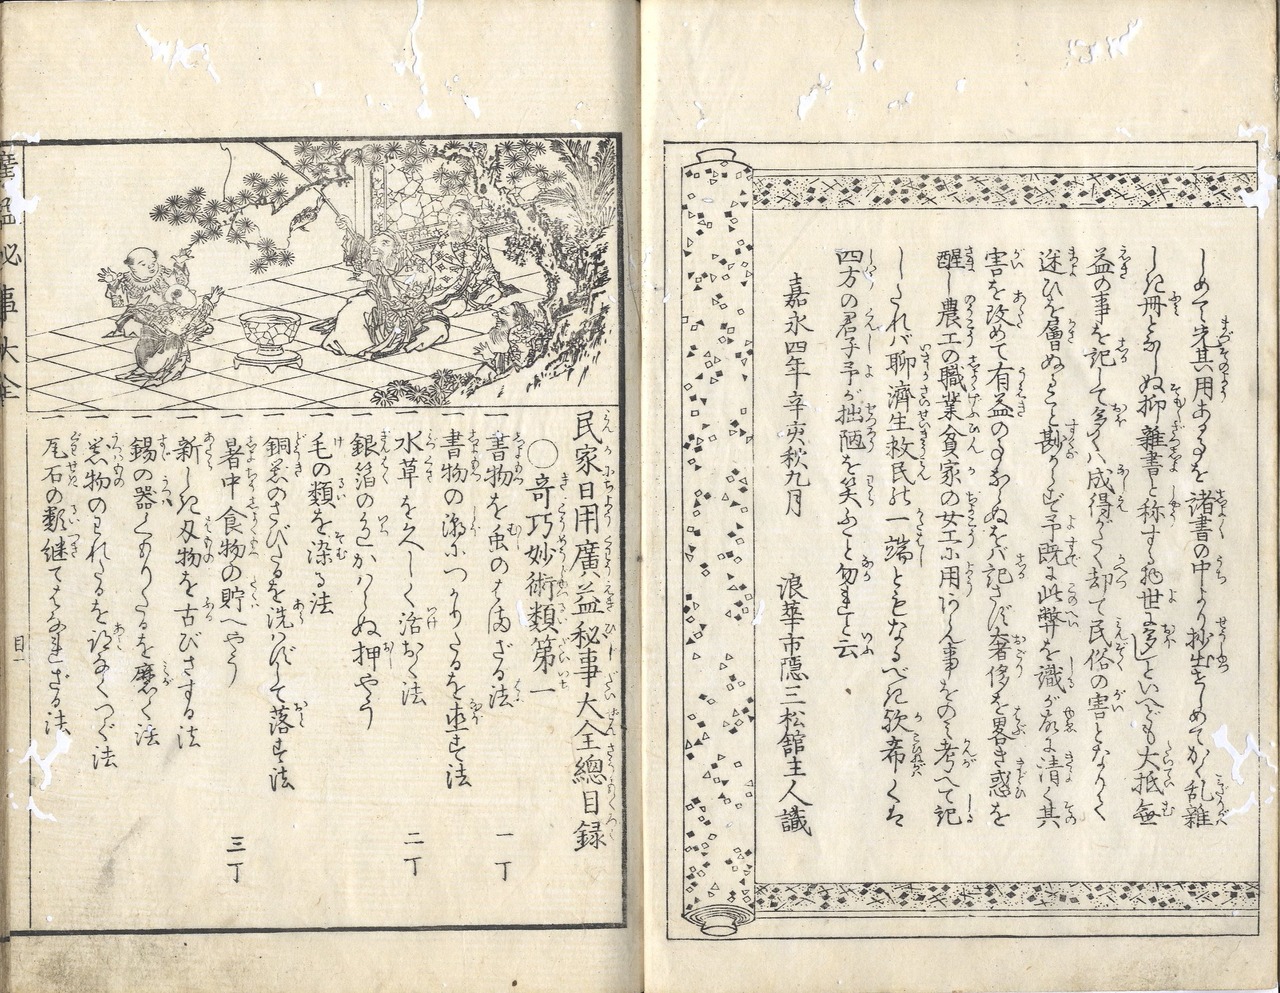 しめて先其用あるを諸書の中より抄出せしめてかく乱雑
しき冊となしぬ抑雑書と称する物世に多しといへども大抵無
益の事を記して多くハ成得がたく却て民俗の害となりて
迷ひを層ぬること尠からず予既に此弊を識が故に清く其
害を改めて有益の事ならぬをバ記さず奢侈を畧き惑を
醒し農工の職業貧家の女工に用ひん事をのミ考へて記
しゝれバ聊済生救民の一端ともなるべき歟希くは
四方の君子予が拙陋を笑ふこと勿れと云
嘉永四年辛亥秋九月 浪華市隠三松舘主人識
民家日用廣益秘事大全總目録
〇奇巧妙術類第一
一書物を虫のはまざる法 一丁
一書物の瀋につゝりたるを直す法
一水草を久しく活おく法 二丁
一銀箔の色かハらぬ押やう
一毛の類を染る法
一銅器のさびたるを洗ハずして落す法
一暑中食物の貯へやう 三丁
一新しき刃物を古びさする法
一錫の器くもりたるを磨く法
一器物のわれたるを跡なくつぐ法
一瓦石の類継てはなれざる法
秘事大全
目一